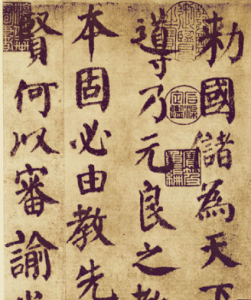 勅國儲為天下
導乃元良之教
本固必由教先
賢何以審諭